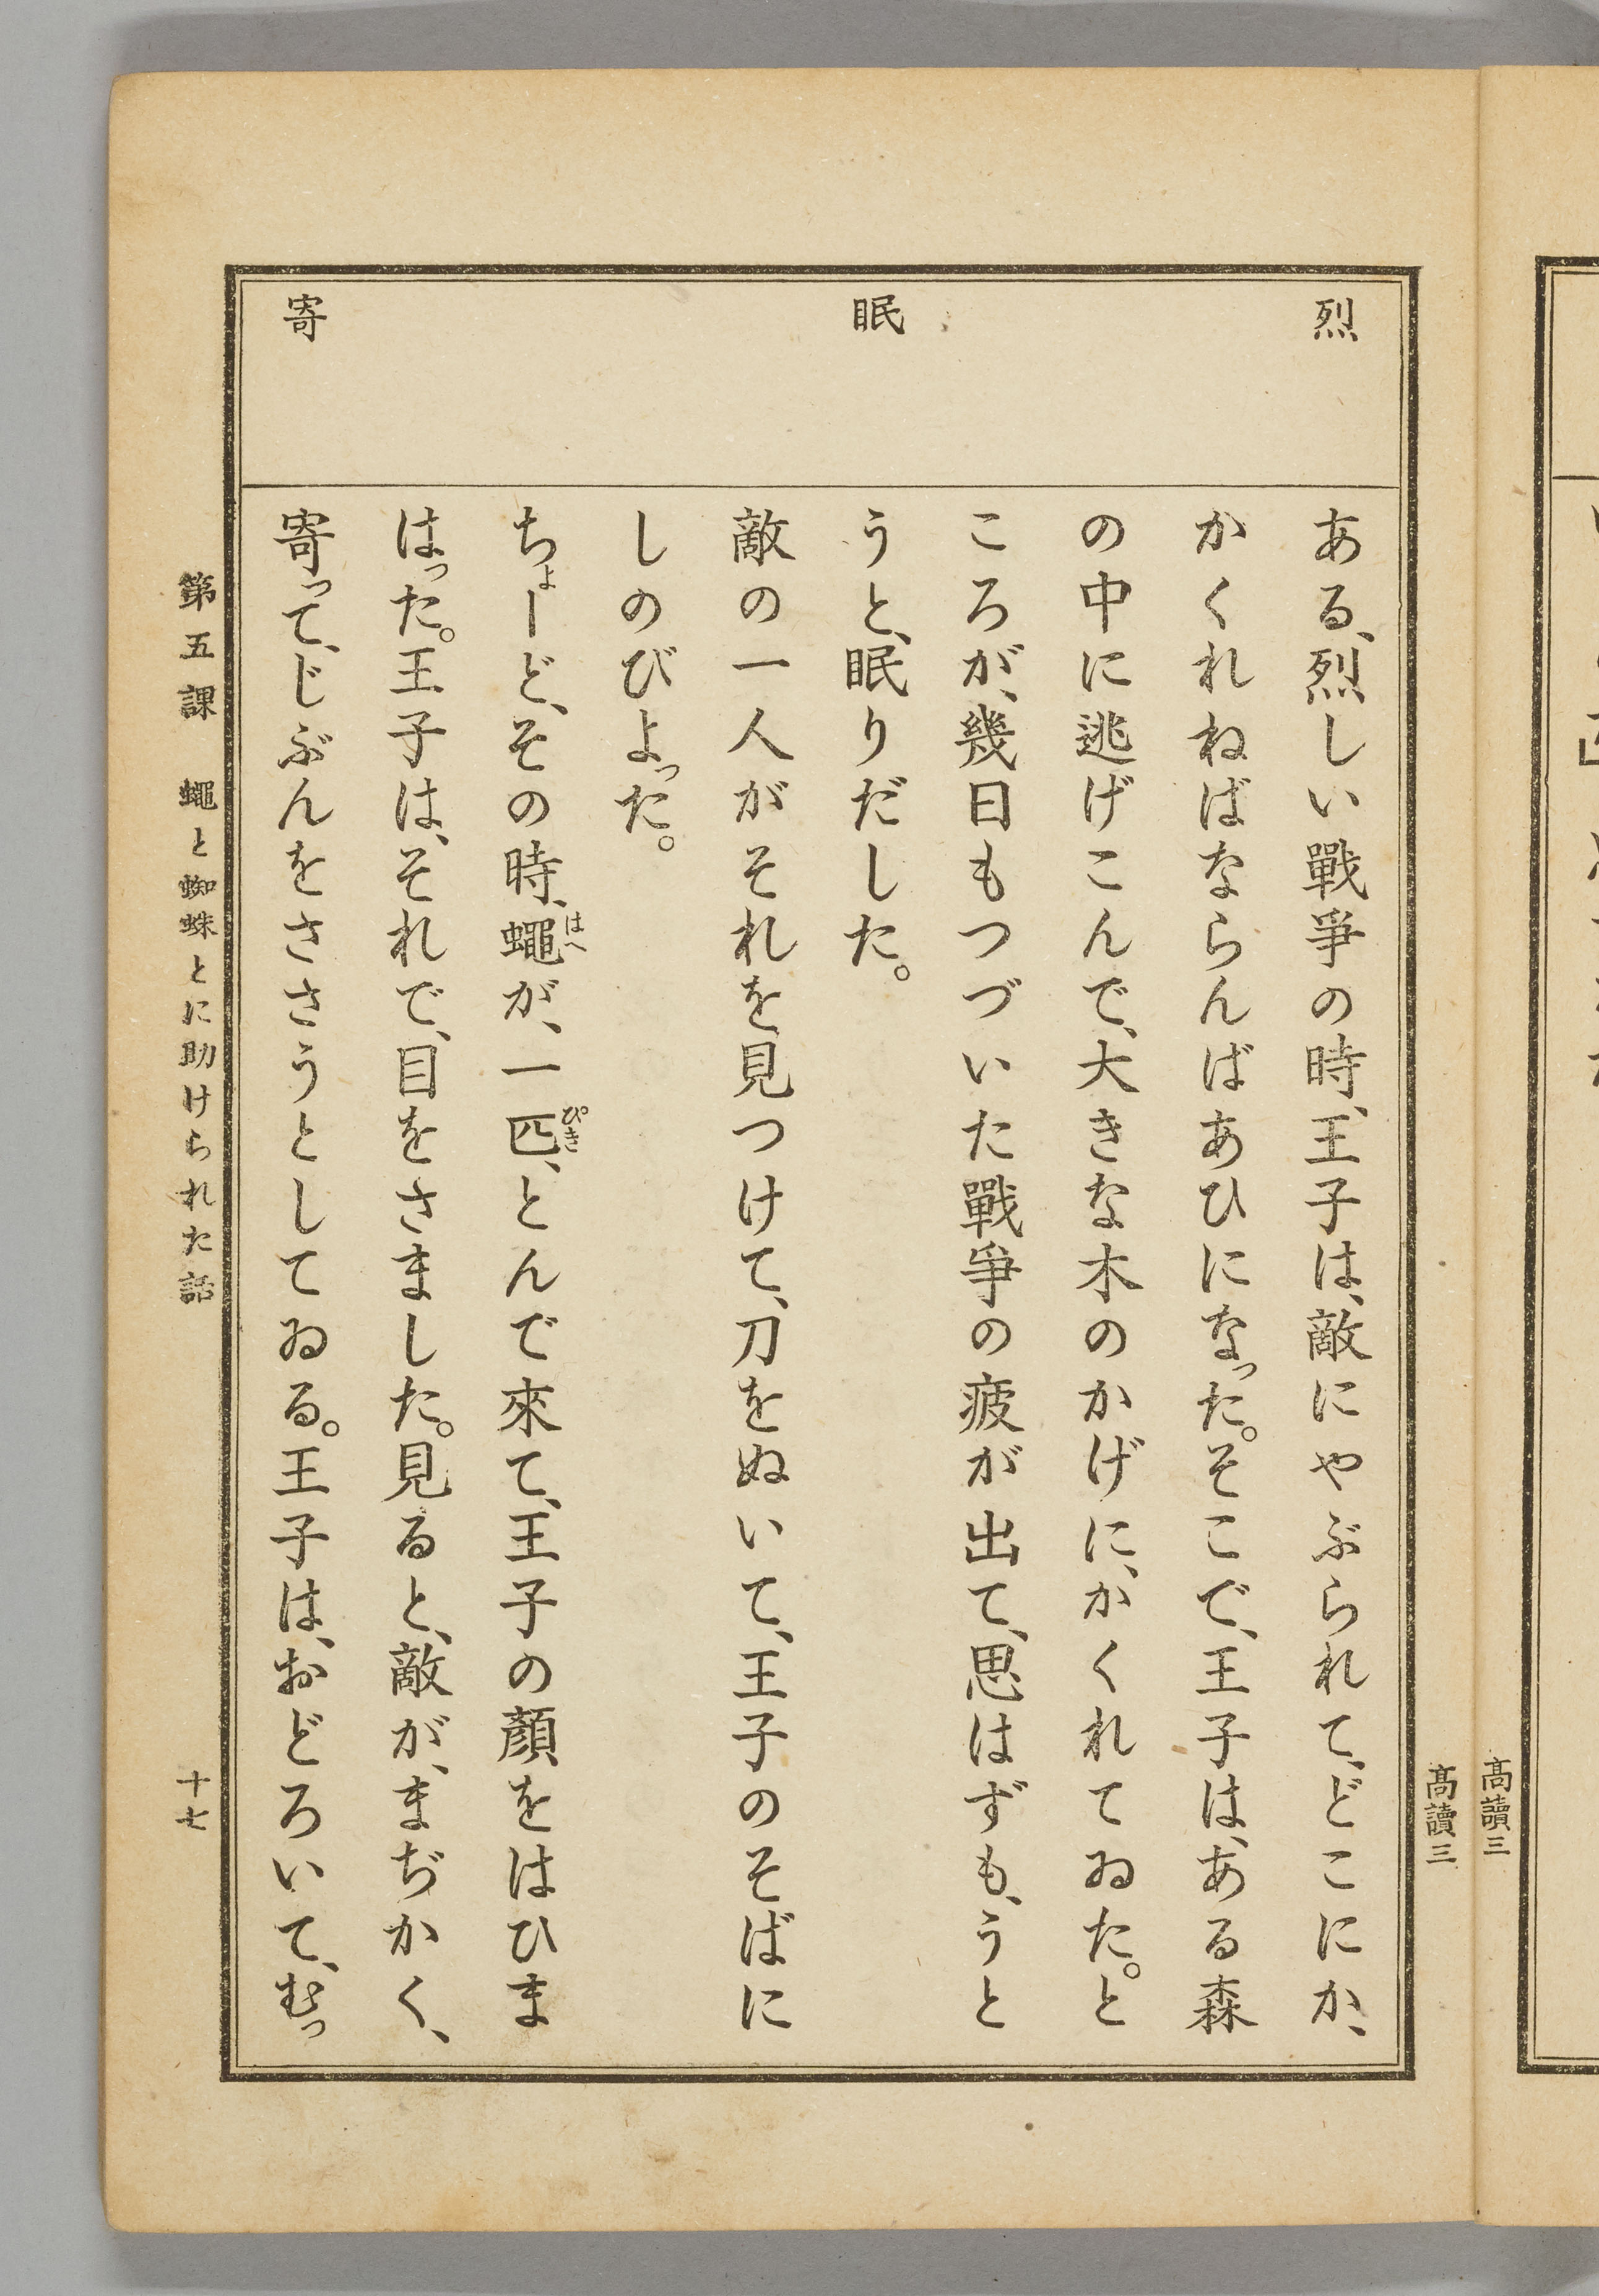 高讀三
高讀三
烈
眠
寄
ある、烈しい戰爭の時、王子は、敵にやぶられて、どこにか、
かくれねばならんばあひになった。そこで、王子は、ある森
の中に逃げこんで、大きな木のかげに、かくれてゐた。と
ころが、幾日もつづいた戰爭の疲が出て、思はずも、うと
うと、眠りだした。
敵の一人がそれを見つけて、刀をぬいて、王子のそばに
しのびよった。
ちょーど、その時、蠅が、一匹、とんで來て、王子の顏をはひま
はへ
ぴき
はった。王子は、それで、目をさました。見ると、敵が、まぢかく、
寄って、じぶんをささうとしてゐる。王子は、おどろいて、むっ
第五課 蠅と蜘蛛とに助けられた話
十七